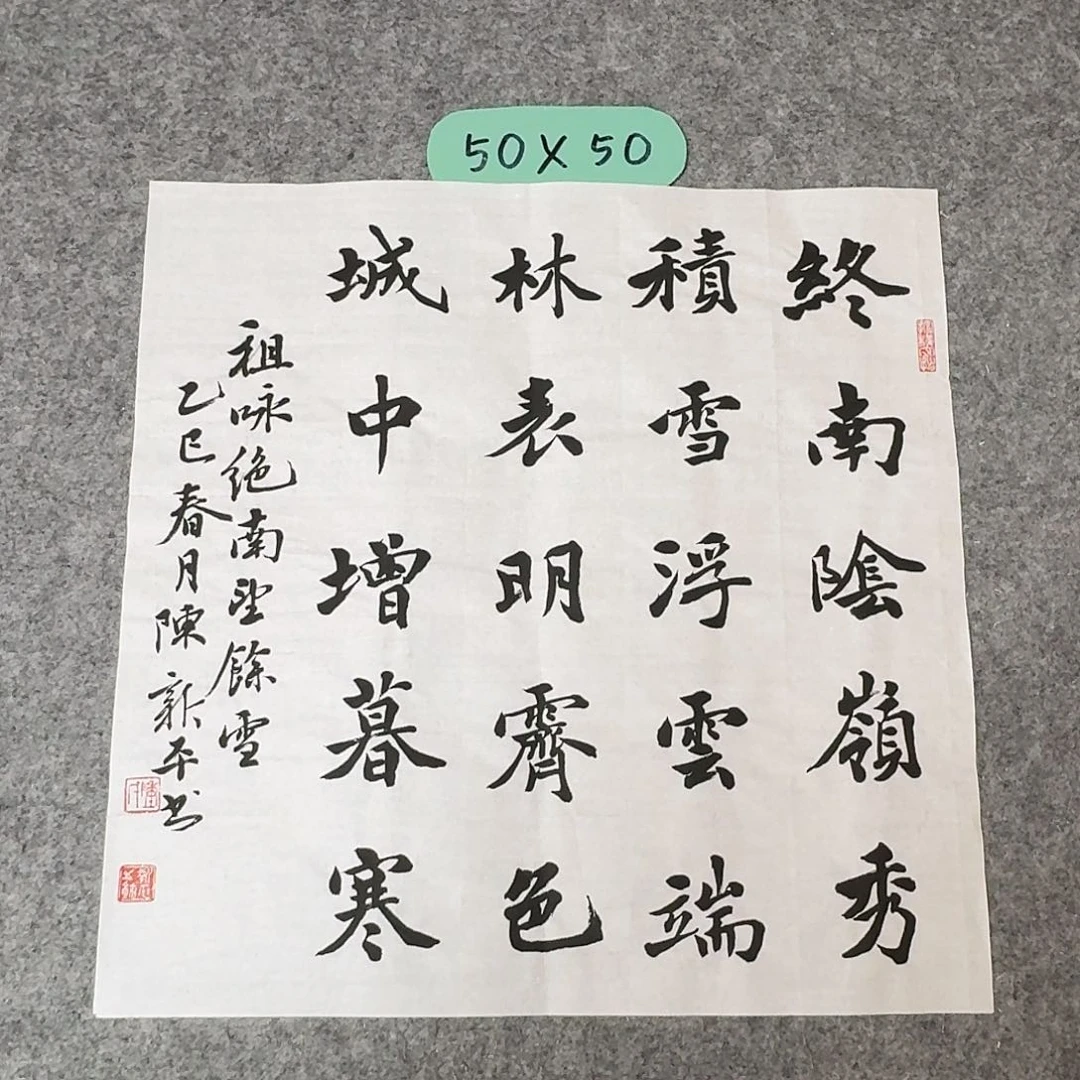 50X50
終南陰嶺秀
積雪浮雲端
林表明霽色
城中增暮寒
祖咏绝南望餘雪
乙巳春月陳新平书